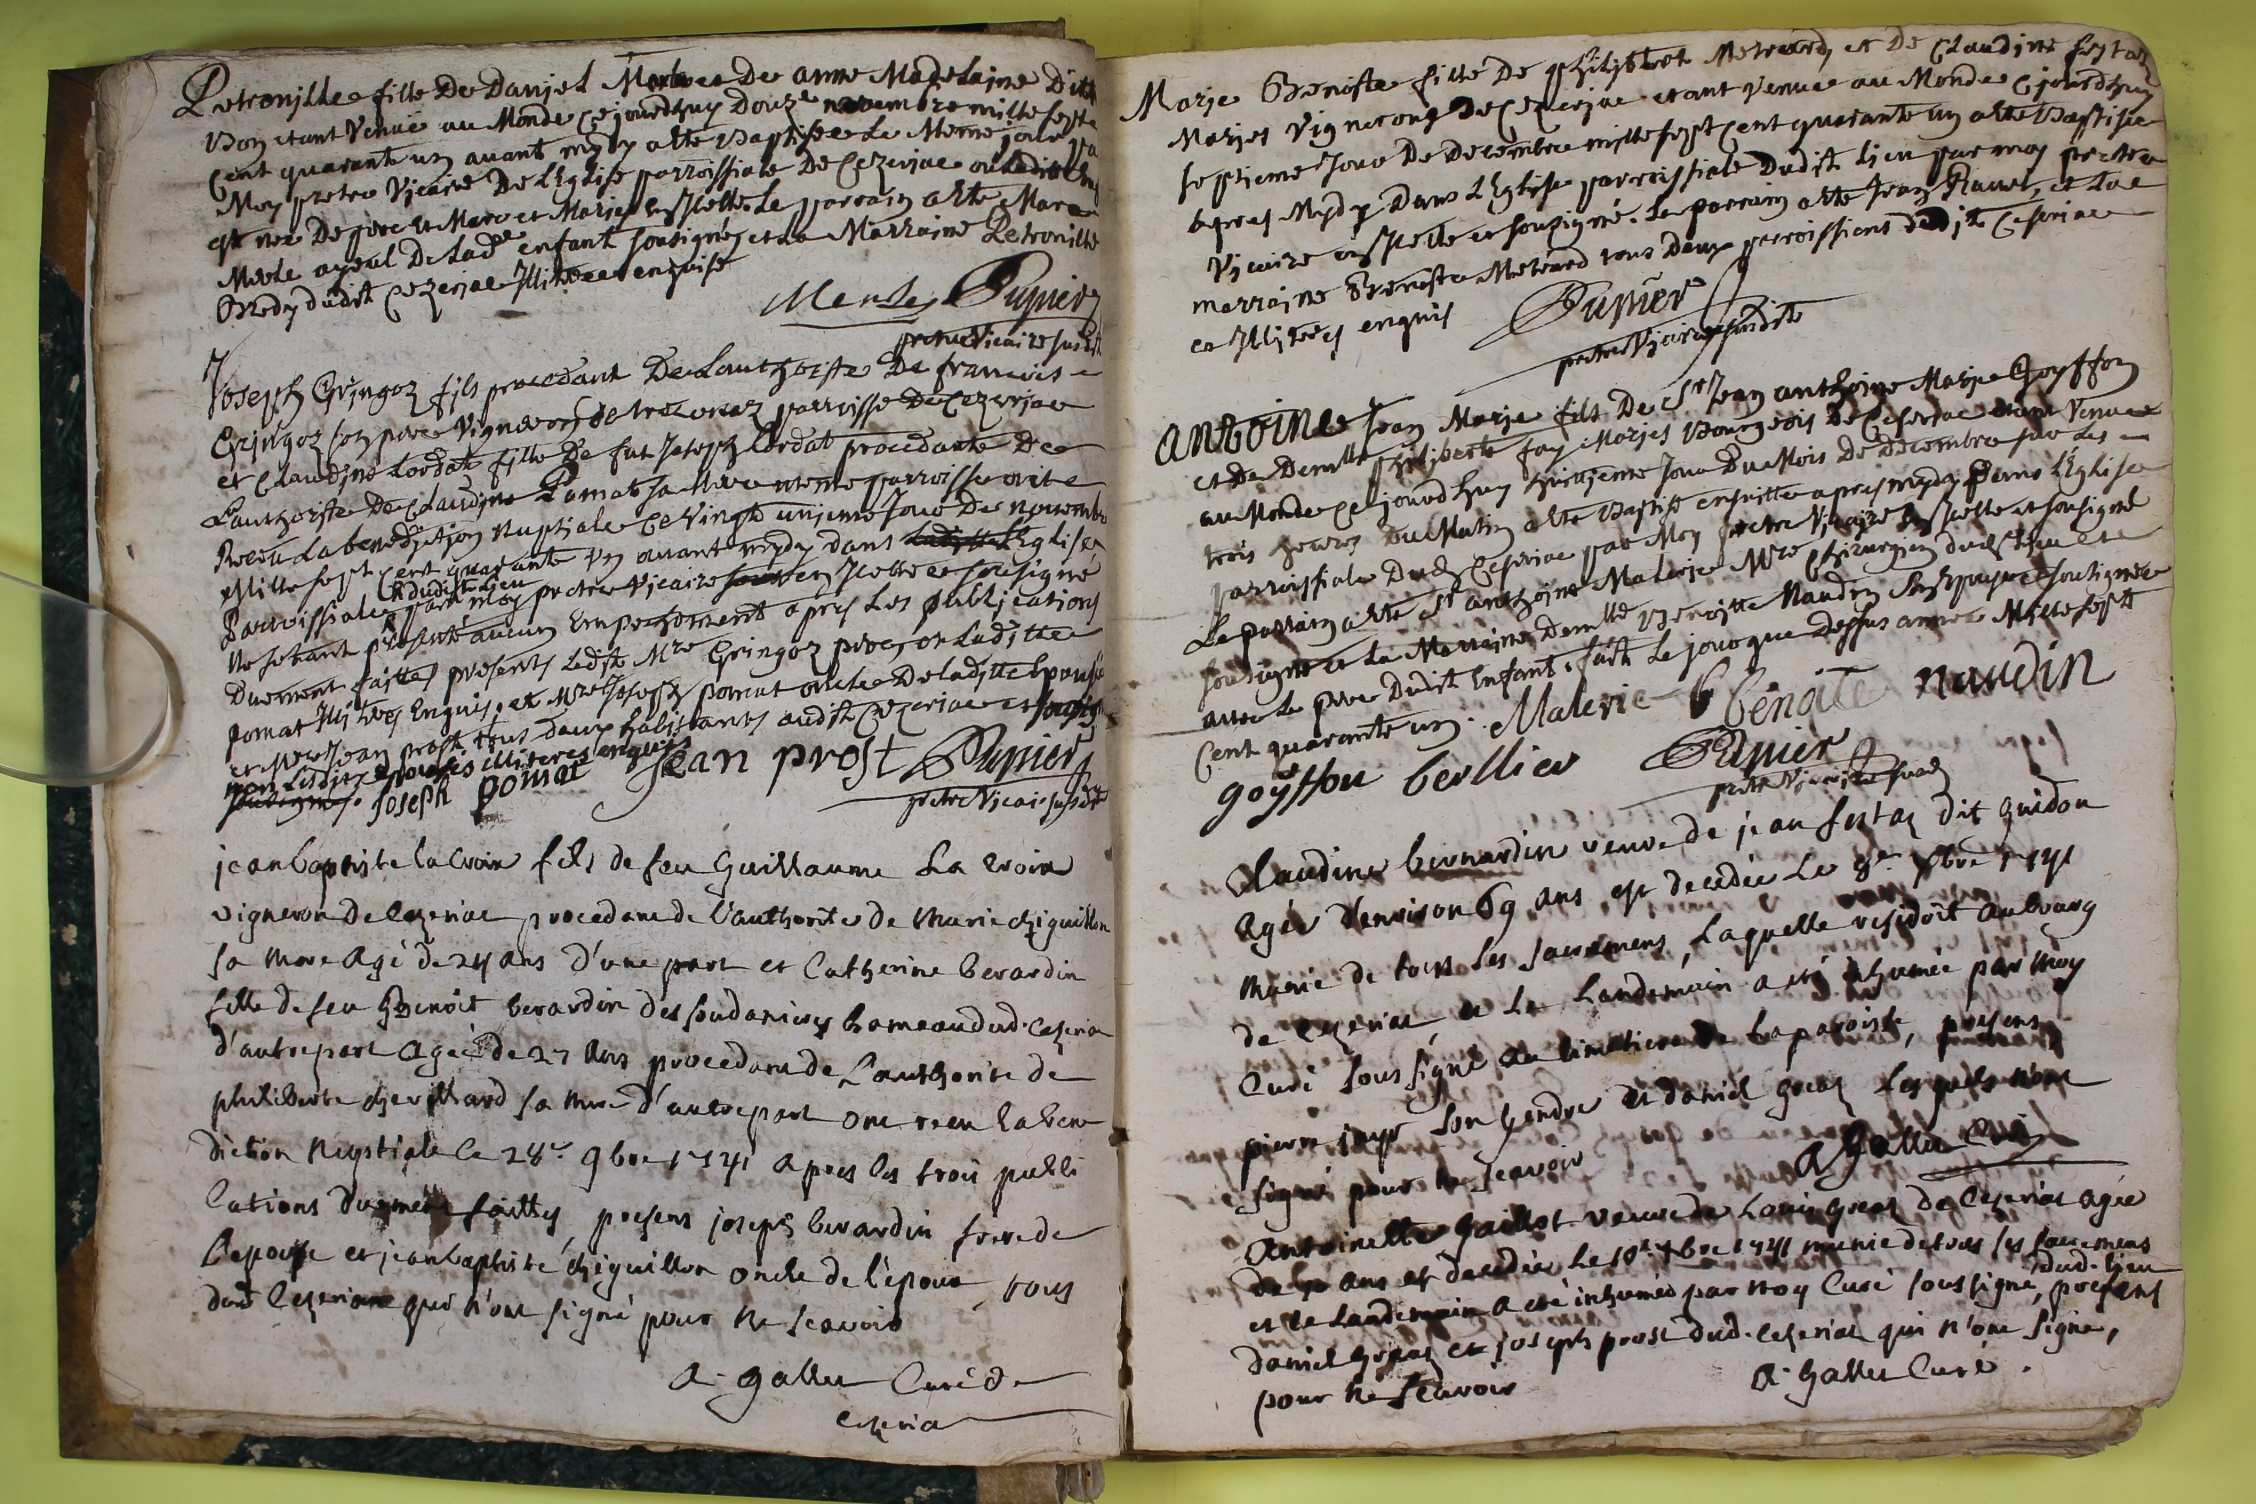 Petronille fille De Danjel Merle et De anne Madelaine Ditte
Bon etant Venuë au Monde Cejourdhuy Douze novembre mille sept
Cent quarante un avant mydy a ete Baptisée Le Meme jour pa
Moy pretre Vicaire De L'Eglise parroissiale De Cezeriac ou ladite
est née De pere et Mere et Mariés en Icelle. Le parrain a ete Marc
Merle ayeul De Lade enfant sousigné et La Marraine Petronille
Bredy dudit Cezeriac Illiteree enquise
Merle Pupier
pretre Vicaire susdit
Joseph Gringoz fils procedant De Lauthorité De francois
Gringoz son pere Vigneron de parroisse De Cezeriac
et Claudine Cordat fille De fut Joseph Cordat procedante De
Lauthorité De Claudine Pomat sa Mere meme parroisse ont
Receu La benediction Nuptiale Ce Vingt unieme Jour De novembre
Mille sept Cent quarante Un avant mydy dans L'Eglise
Parroissiale dudit Lieu par moy pretre Vicaire en Icelle et sousigné
Ne setant presenté aucun Empechement apres Les publications
Duement faittes presents Ledit Mre Gringoz pere, et Laditte
pomat Illiterés Enquis. et Mre Joseph pomat oncle De laditte Epouse
et Mre Jean prost tous deux habitants audit Cezeriac et sousig
non Lesdits Epousés illiteres enquis
Joseph pomat Jean prost Pupier
pretre Vicai. susdit
jean baptiste lacroix fils de feu Guillaume La croix
vigneron de Cezeriat procedant de l'authorité de Marie chiguillon
sa Mere Agé de 24 ans d'une part et Catherine berardin
fille de feu Benoit berardin des soudanieres hameau dud. Cezeria
d'autre part Agée de 27 Ans procedant de L'authorité de
philiberte chevillard sa Mere d'autre part ont receu la bene
diction Nuptiale le 28e 9bre 1741 apres les trois publi
Cations duement faittes, presens joseph berardin frere de
l'epouse et jean baptiste chiguillon oncle de l'époux, tous
dud Cezeriat qui n'ont signé pour ne scavoir
A. Gallet Curé de
Cezeria
Marie Benoite fille De philibert Metrard, et De Claudine festaz
Mariés Vignerons De Cezeriac etant Venuë au Monde Cejourdhuy
septieme Jour De Decembre mille sept Cent quarante un a ete Baptisée
apres Mydy Dans L'Eglise parroissiale Dudit Lieu par moy pretre
Vicaire en Icelle et sousigné. Le parrain a ete Jean Ravet, et La
marraine Benoite Metrard tous Deux parroissiens dudit Cezeriac
et Illiterés enquis Pupier
pretre Vicaire susdit
Antoine Jean Marie fils De Sr Jean anthoine Marie Goyffon
et De Demlle philiberte fay Mariés Bourgeois De Cezeriac etant Venu
au Monde Cejourdhuy huitieme Jour Du Mois De Decembre sur Les
trois heures du Matin a ete Baptisé ensuitte apres mydy Dans L'Eglise
parroissiale Dud Cezeriac par Moy pretre Vicaire En Icelle et sousigné
Le parrain a ete Sr anthoine Malerie Mre Chirurgien dud Lieu et
sousigné et La Marraine Demlle Benoitte Naudin sousignée
avec Le pere Dudit Enfant. fait Le jour que dessus année Mille sept
Cent quarante un. Malerie benoite naudin
goyffon berllier Pupier
pretre Vicaire susd
Claudine bernardin veuve de jean festaz dit Guidon
agée d'environ 69 ans est decedée Le 8e Xbre 1741
Munie de tous les sacremens, Laquelle residoit au bourg
de Cezeriat et Le Landemain a eté inhumée par Moy
Curé sous signé au Cimetiere de La paroisse, presens
pierre son gendre et daniel greaz Lesquels n'ont
signé pour ne scavoir
A Gallet Curé
Antoinette Gaillot veuve de Louis greaz de Cezeriat agée
de 70 ans est decedée Le 10e Xbre 1741 munie de tous ses sacremens
et le Landemain a eté inhumée par moy Curé sous signé dud. lieu, presens
Daniel Greaz et joseph prost dud. Cezeriat qui n'ont signé,
pour ne scavoir
A. Gallet Curé.